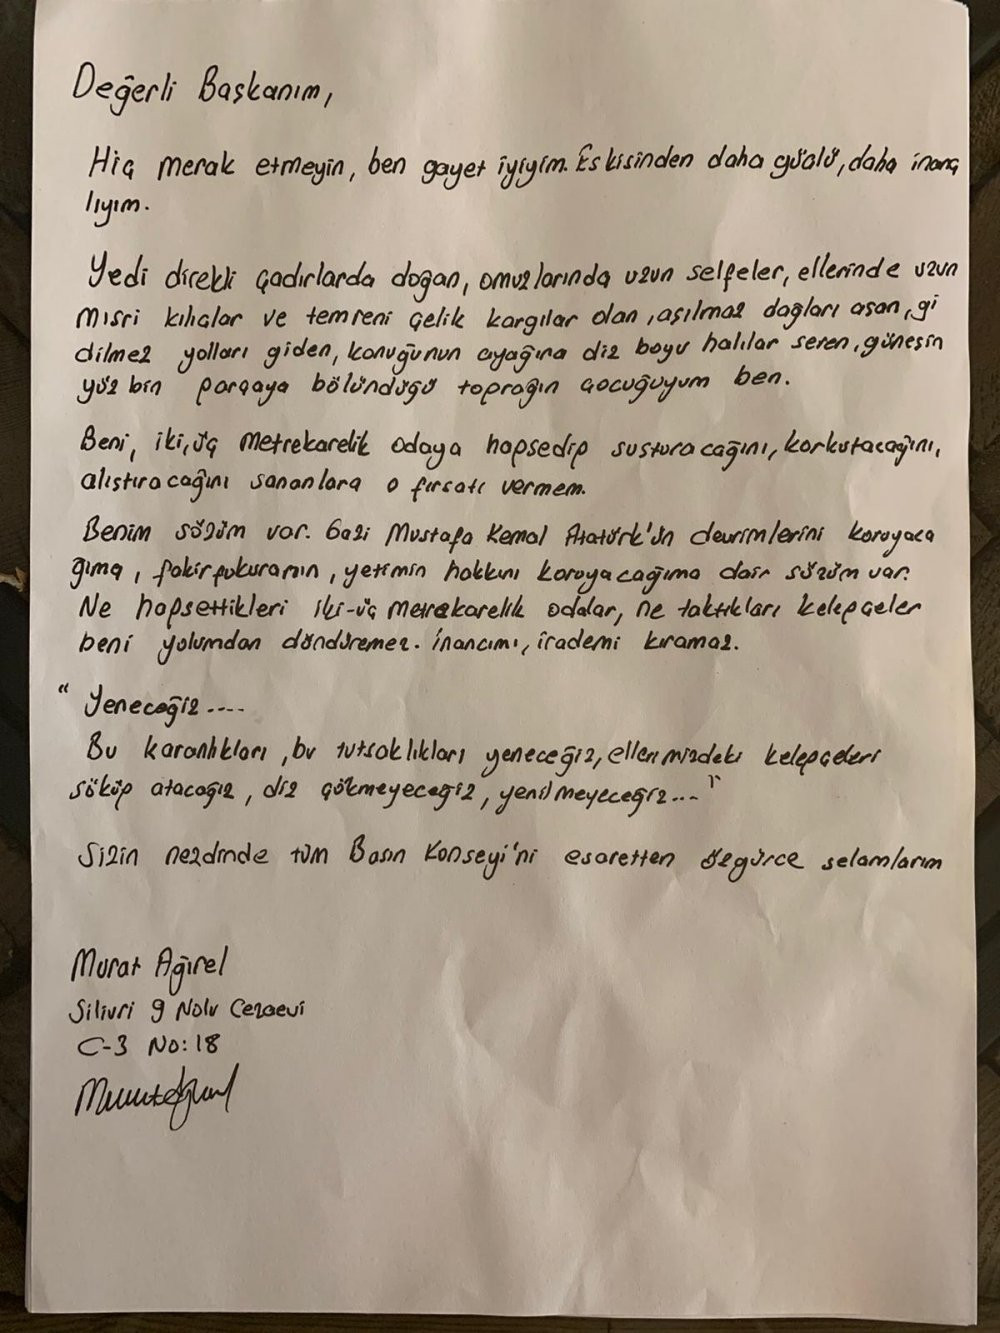 Değerli Başkanım,
Hiç merak etmeyin, ben gayet iyiyim. Eskisinden daha güçlü, daha inanç
lıyım.
Yedi direkli çadırlarda doğan, omuzlarında uzun selfeler, ellerinde uzun
mısri kılıçlar ve temreni çelik kargılar olan, aşılmaz dağları aşan, gi
dilmez yolları giden, konuğunun ayağına diz boyu halılar seren, güneşin
yüz bin parçaya bölündüğü toprağın çocuğuyum ben.
Beni, iki, üç metrekarelik odaya hapsedip susturacağını, korkutacağını,
alıştıracağını sananlara o fırsatı vermem.
Benim sözüm var. Gazi Mustafa Kemal Atatürk'ün devrimlerini koruyaca
ğıma, fakir fukuranın, yetimin hakkını koruyacağıma dair sözüm var.
Ne hapsettikleri iki-üç metrekarelik odalar, ne taktıkları kelepçeler
beni yolumdan döndüremez. İnancımı, irademi kıramaz.
" Yeneceğiz ....
Bu karanlıkları, bu tutsaklıkları yeneceğiz, ellerimizdeki kelepçeleri
söküp atacağız, diz çökmeyeceğiz, yenilmeyeceğiz... "
Sizin nezdinde tüm Basın Konseyi'ni esaretten özgürce selamlarım
Murat Ağırel
Silivri 9 Nolu Cezaevi
C-3 No: 18